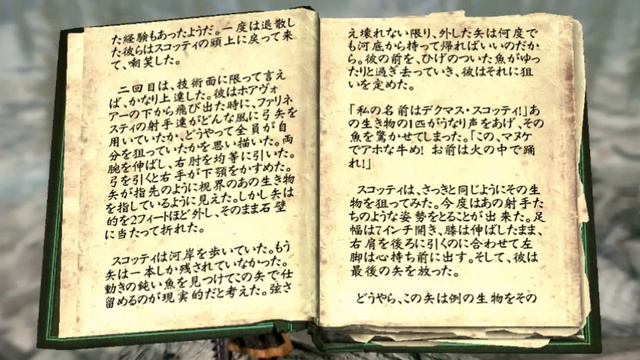 た経験もあったようだ。一度は退散し
た彼らはスコッティの頭上に戻って来
て、嘲笑した。
二回目は、技術面に限って言え
ば、かなり上達した。彼はホアヴォ
アーの下から飛び出た時に、ファリネ
スティの射手達がどんな風に弓矢を
用いていたか、どうやって全員が自
分を狙っていたかを思い描いた。両
腕を伸ばし、右肘を均等に引いた。
弓を引くと右手が下顎をかすめた。
矢が指先のように視界のあの生き物
を指しているように見えた。しかし矢は
的を2フィートほど外し、そのまま石壁
に当たって折れた。
スコッティは河岸を歩いていた。もう
矢は一本しか残されていなかった。
動きの鈍い魚を見つけてこの矢で仕
留めるのが現実的だと考えた。弦さ
え壊れない限り、外した矢は何度で
も河底から持って帰ればいいのだか
ら。彼の前を、ひげのついた魚がゆっ
たりと過ぎ去っていき、彼はそれに狙
いを定めた。
「私の名前はデクマス・スコッティ!」あ
の生き物の1匹がうなり声をあげ、その
魚を驚かせてしまった。「この、マヌケ
でアホな牛め! お前は火の中で踊
れ!」
スコッティは、さっきと同じようにその生
物を狙ってみた。今度はあの射手た
ちのような姿勢をとることが出来た。足
幅は7インチ開き、膝は伸ばしたまま、
右肩を後ろに引くのに合わせて左
脚は心持ち前に出す。そして、彼は
最後の矢を放った。
どうやら、この矢は例の生物をその